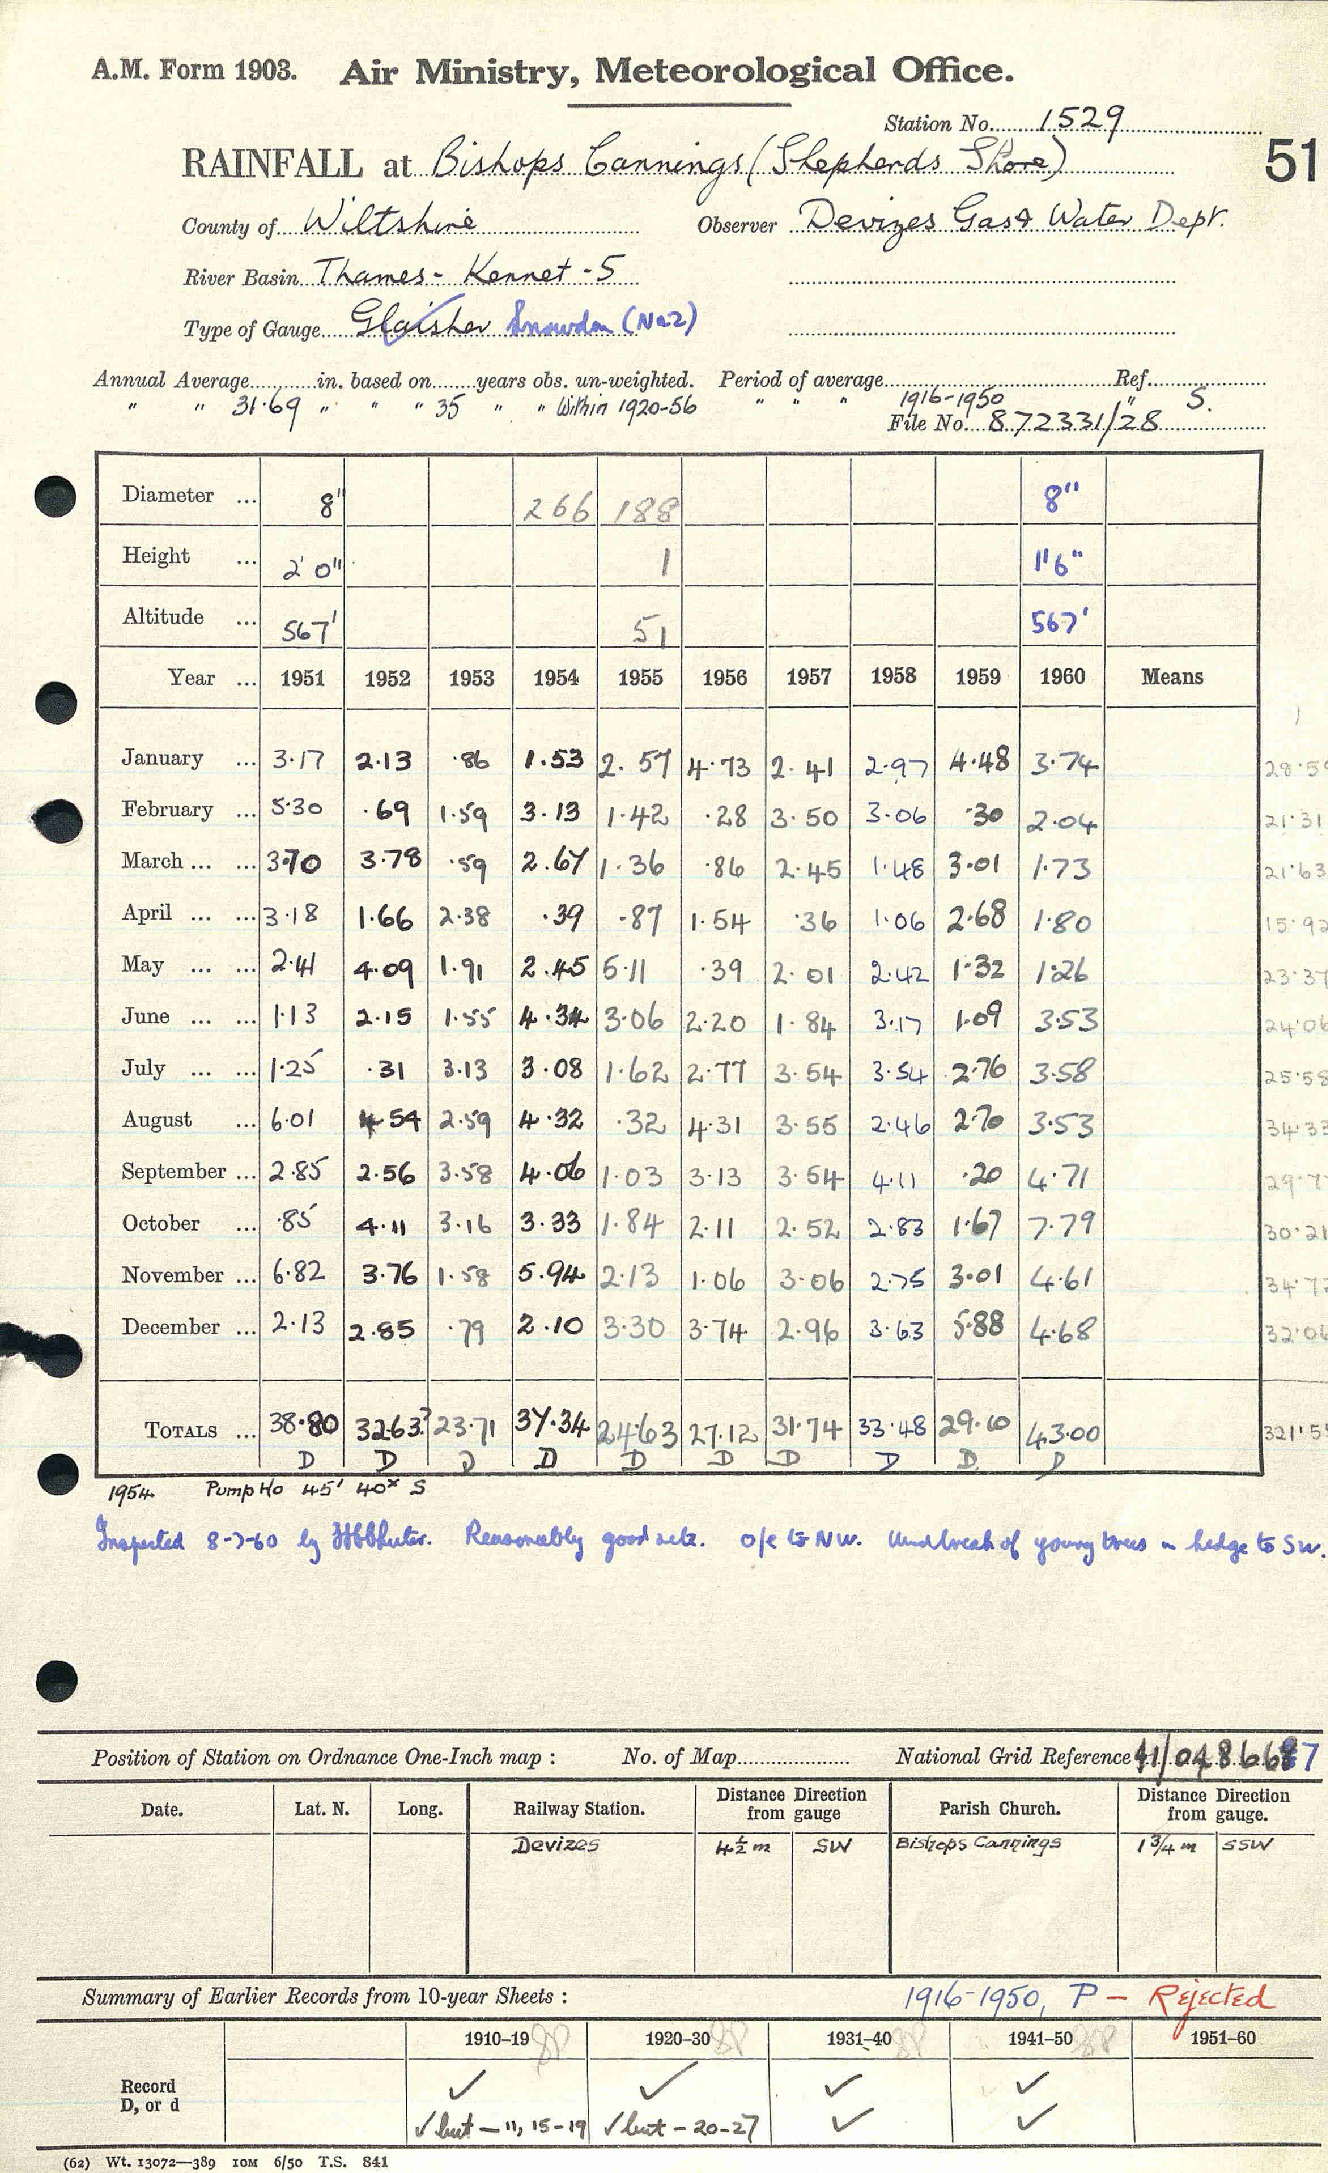 A.M. Form 1903. Air Ministry, Meteorological Office.
Station No. 1529
RAINFALL at Bishops Cannings (Shepherds Shore) 51
County of Wiltshire Observer Devizes Gas & Water Dept.
River Basin Thames - Kennet - 5
Type of Gauge Glaisher Snowdon (No2)
Annual Average in. based on years obs. un-weighted. Period of average Ref.
" " 31.69 " " " 35 " " Within 1920-56 " " " 1916-1950 " S.
File No. 872331/28
Diameter ... 8" 266 188 8"
Height ... 2' 0" 1 1'6"
Altitude ... 567' 51 567'
Year ... 1951 1952 1953 1954 1955 1956 1957 1958 1959 1960 Means
January ... 3.17 2.13 .86 1.53 2.57 4.73 2.41 2.97 4.48 3.74 28.59
February ... 5.30 .69 1.59 3.13 1.42 .28 3.50 3.06 .30 2.04 21.31
March ... ... 3.70 3.78 .59 2.67 1.36 .86 2.45 1.48 3.01 1.73 21.63
April ... ... 3.18 1.66 2.38 .39 .87 1.54 .36 1.06 2.68 1.80 15.92
May ... ... 2.41 4.09 1.91 2.45 5.11 .39 2.01 2.42 1.32 1.26 23.37
June ... ... 1.13 2.15 1.55 4.34 3.06 2.20 1.84 3.17 1.09 3.53 24.06
July ... ... 1.25 .31 3.13 3.08 1.62 2.77 3.54 3.54 2.76 3.58 25.58
August ... 6.01 4.54 2.59 4.32 .32 4.31 3.55 2.46 2.70 3.53 34.33
September ... 2.85 2.56 3.58 4.06 1.03 3.13 3.54 4.11 .20 4.71 29.7
October ... .85 4.11 3.16 3.33 1.84 2.11 2.52 2.83 1.67 7.79 30.21
November ... 6.82 3.76 1.58 5.94 2.13 1.06 3.06 2.75 3.01 4.61 34.7
December ... 2.13 2.85 .79 2.10 3.30 3.74 2.96 3.63 5.88 4.68 32.06
TOTALS ... 38.80 32.63? 23.71 37.34 24.63 27.12 31.74 33.48 29.10 43.00 321.5
D D D D D D D D D D
1954 Pump Ho 45' 40x S
Inspected 8-7-60 by Reasonably good site. o/e to NW. Windbreak of young trees in hedge to SW.
Position of Station on Ordnance One-Inch map : No. of Map National Grid Reference 41/048668 87
Date. Lat. N. Long. Railway Station. Distance from Direction gauge Parish Church. Distance from Direction gauge.
Devizes 4½ m SW Bishops Cannings 1¾ m SSW
Summary of Earlier Records from 10-year Sheets : 1916-1950, P - Rejected
1910-19 1920-30 1931-40 1941-50 1951-60
Record ✓ ✓ ✓ ✓
D, or d ✓ but - 11, 15-19 ✓ but - 20-27 ✓ ✓
(62) Wt. 13072—389 10M 6/50 T.S. 841